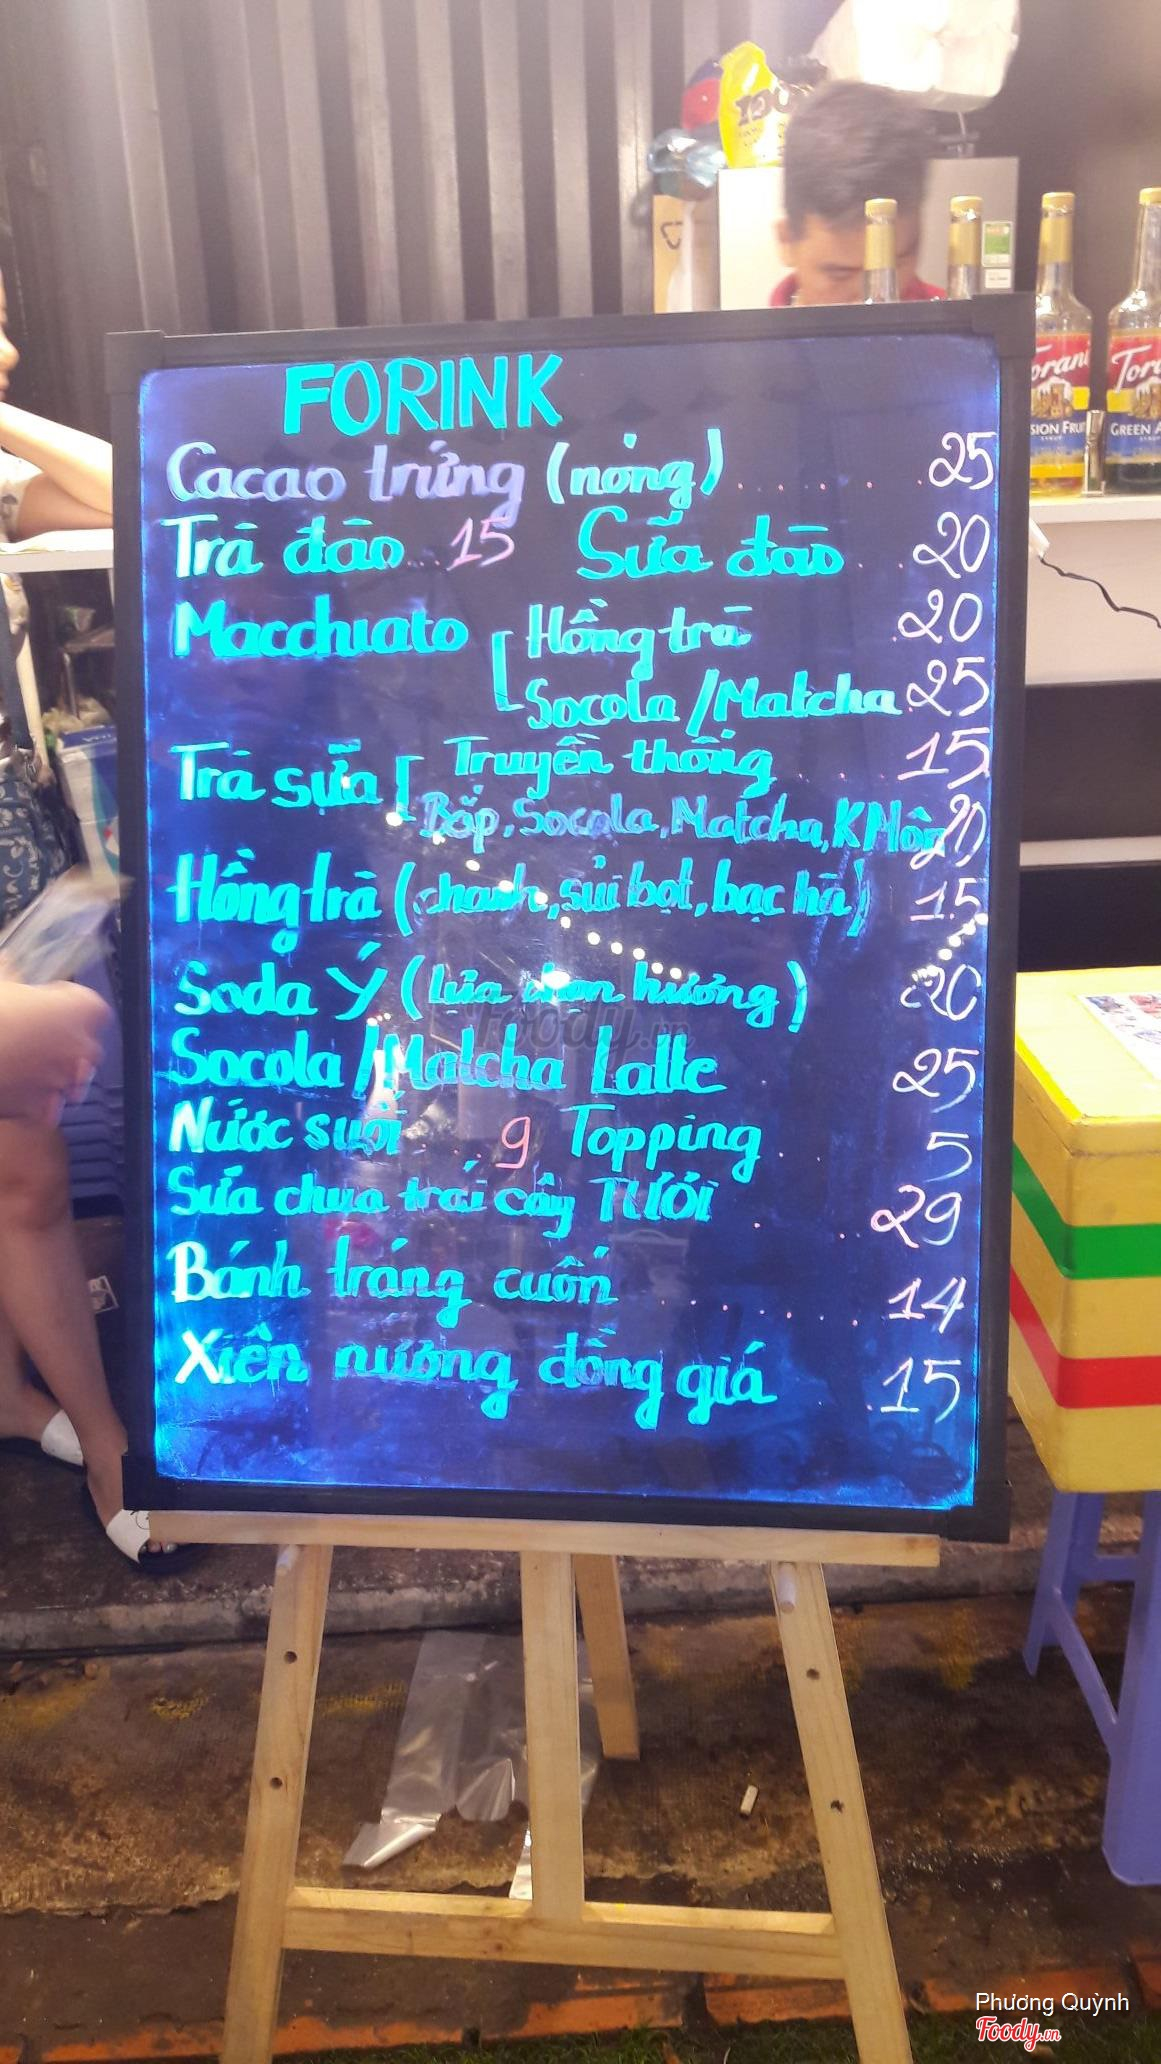 FORINK
Cacao trứng (nóng) ........ 25
Trà đào... 15 Sữa đào... 20
Macchiato Hồng trà . 20
Socola/Matcha 25
Trà sữa Truyền thống .... 15
Bắp, Socola, Matcha, K Môn 20
Hồng trà (chanh, sủi bọt, bạc hà) 15
Soda Ý (lựa chọn hương) 20
Socola/Matcha Latte 25
Nước suối ... 9 Topping ... 5
Sữa chua trái cây TƯƠI .. 29
Bánh tráng cuốn ...... 14
Xiên nướng đồng giá . 15
Foody.vn
Torani
SION FRUIT
SYRUP
Tora
GREEN A
100
Phương Quỳnh
Foody.vn